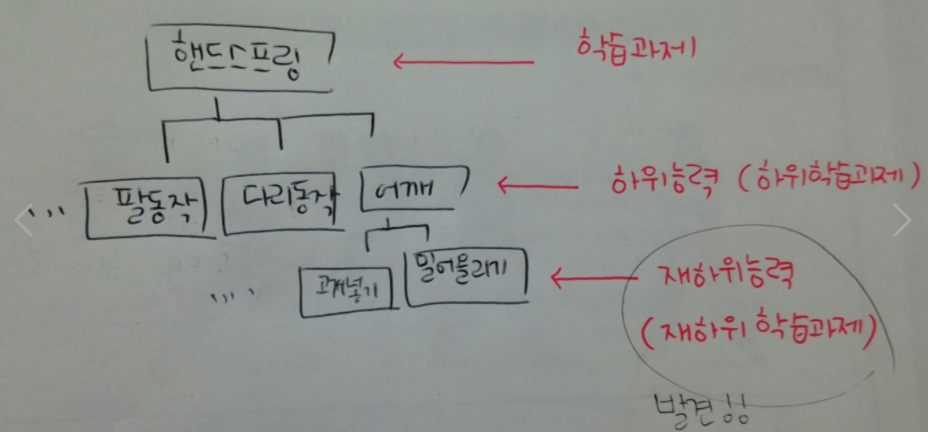 핸드스프링 ← 학습과제
... 팔동작 다리동작 어깨 ← 하위능력 (하위학습과제)
... 고개넣기 밀어올리기 ← 재하위능력
(재하위학습과제)
발견!!